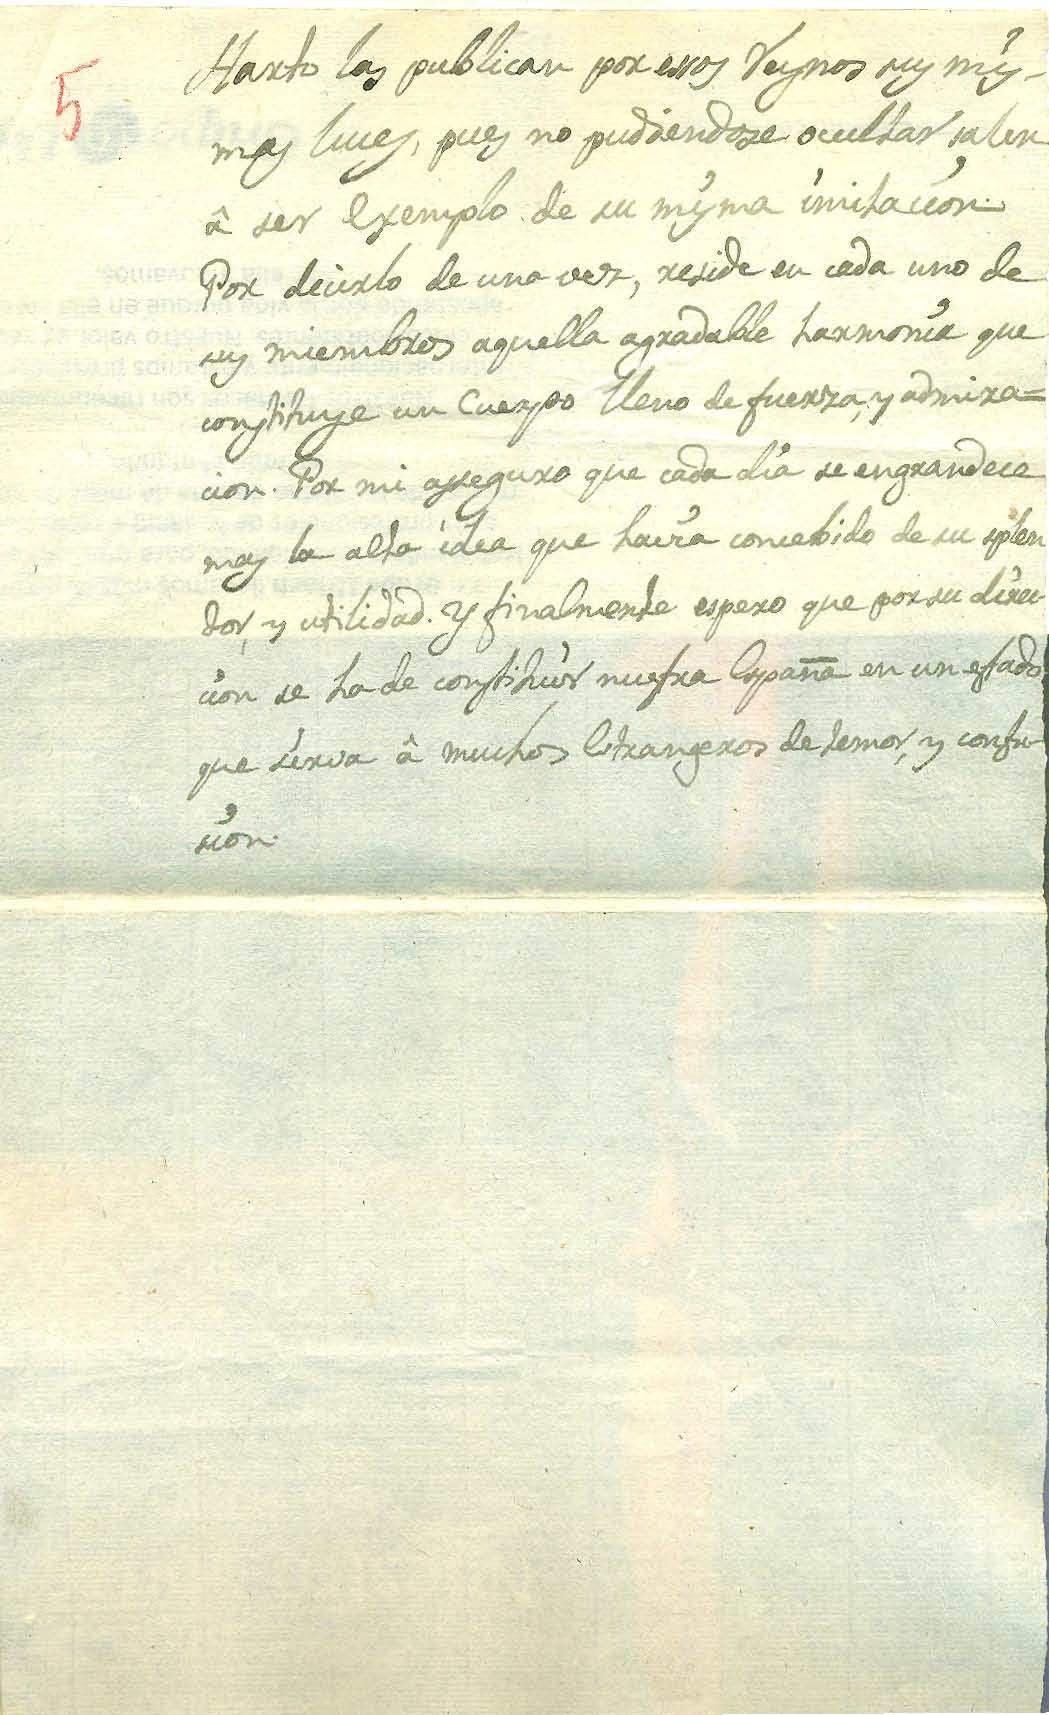 5
Harto las publican por essos Reynos sus mis-
mas luces, pues no pudiendose ocultar salen
â ser exemplo de su misma imitacion.
Por decirlo de una vez, reside en cada uno de
sus miembros aquella agradable harmonia que
constituye un Cuerpo lleno de fuerza, y admira=
cion. Por mi asseguro que cada dia se engrandece
mas la alta idea que havia concebido de su splen
dor, y utilidad. Y finalmente espero que por su direc-
cion se ha de constituir nuestra España en un estado
que sirva â muchos Estrangeros de temor, y confu-
sion.